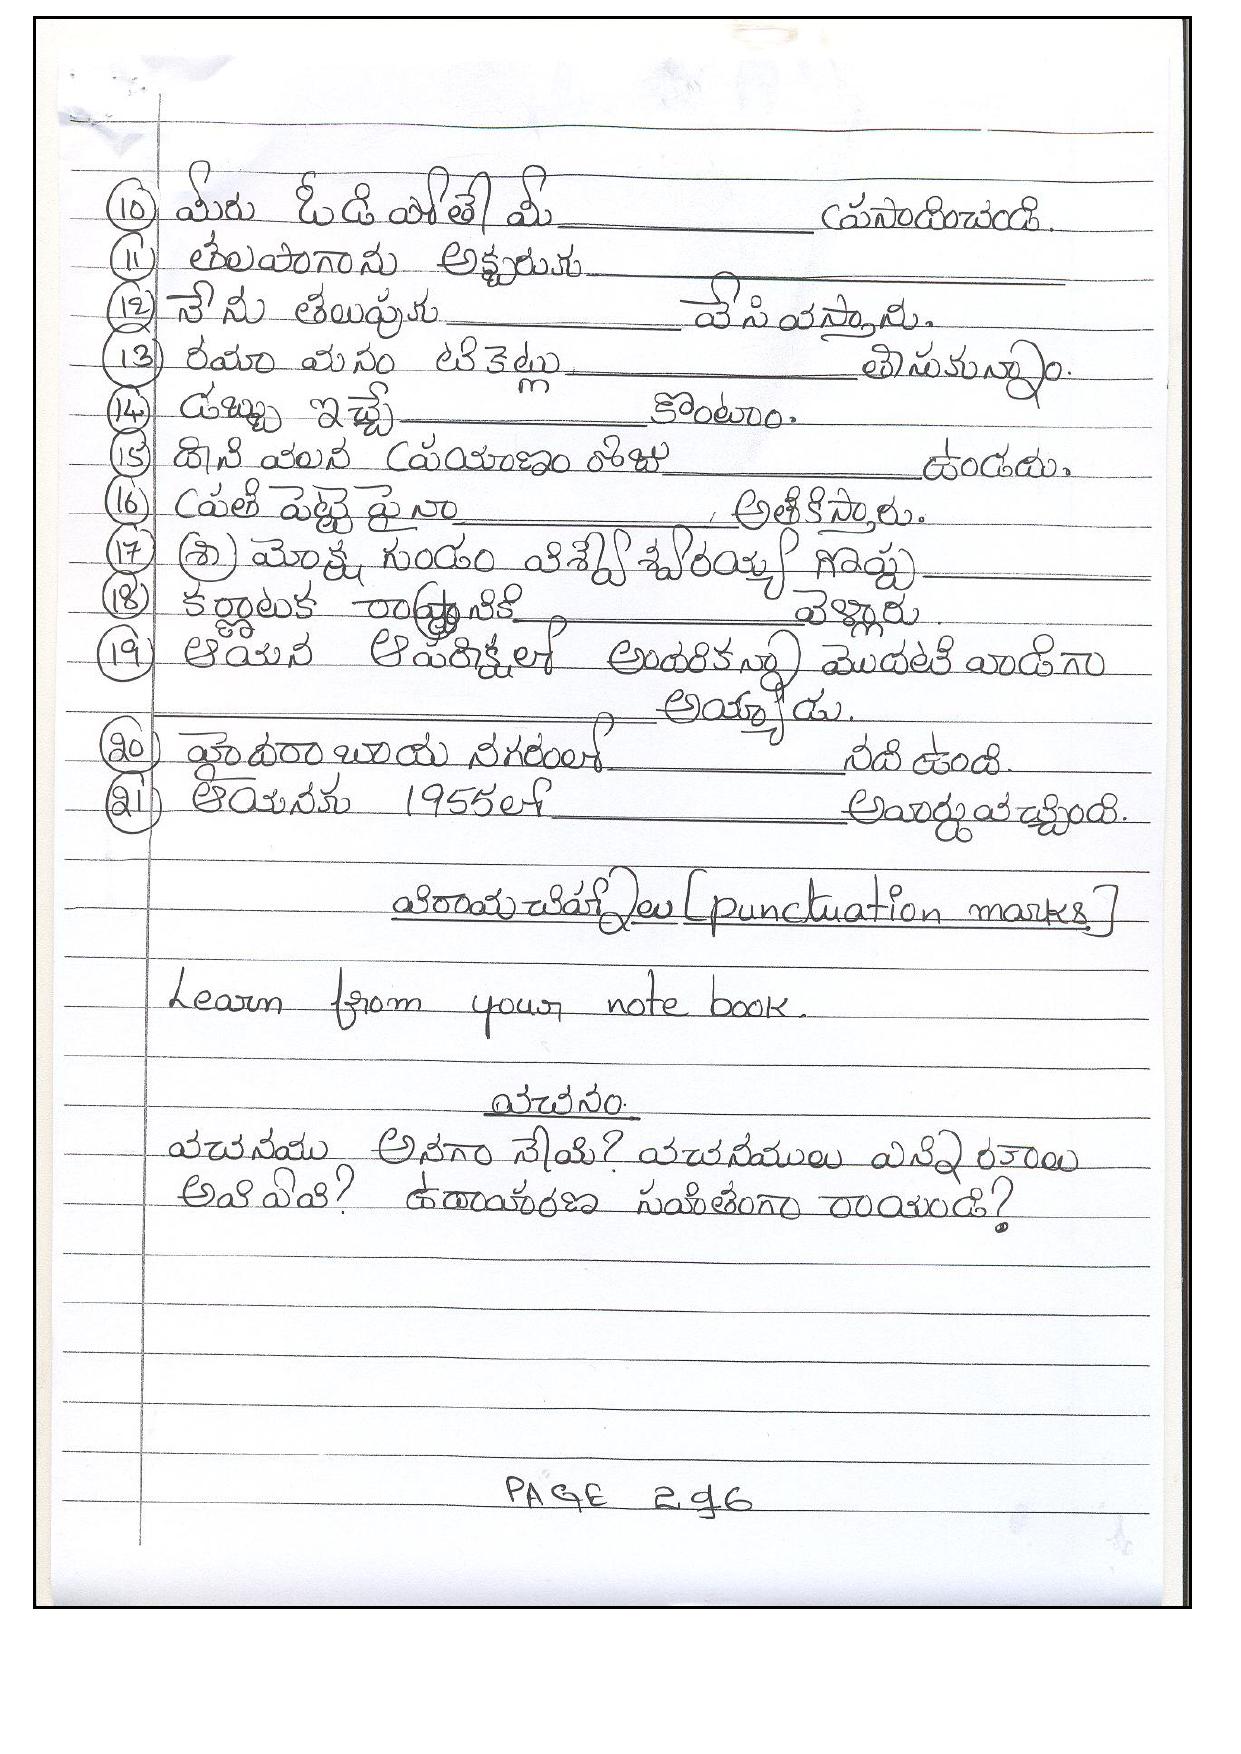 10 మీరు ఓడిపోతే మీ ________ ప్రసాదించండి.
11 తలపాగాను అక్బరుకు ________
12 నేను తలుపుకు ________ వేసి వస్తాను.
13 రయా మనం టికెట్లు ________ తీసుకున్నాం.
14 డబ్బు ఇచ్చే ________ కొంటాం.
15 దాని వలన ప్రయాణం రోజు ________ ఉండదు.
16 ప్రతి పెట్టెపైనా ________ అతికిస్తారు.
17 శ్రీ మోక్ష గుండం విశ్వేశ్వరయ్య గొప్ప ________
18 కర్ణాటక రాష్ట్రానికి ________ వెళ్ళారు.
19 ఆయన ఆ పరీక్షలో అందరికన్నా మొదటి వాడిగా
________ అయ్యాడు.
20 హైదరాబాదు నగరంలో ________ నది ఉంది.
21 ఆయనకు 1955లో ________ అవార్డు వచ్చింది.
విరామ చిహ్నాలు [punctuation marks]
Learn from your note book.
వచనం.
వచనము అనగా నేమి? వచనములు ఎన్ని రకాలు
అవి ఏవి? ఉదాహరణ సహితంగా రాయండి?
PAGE 296